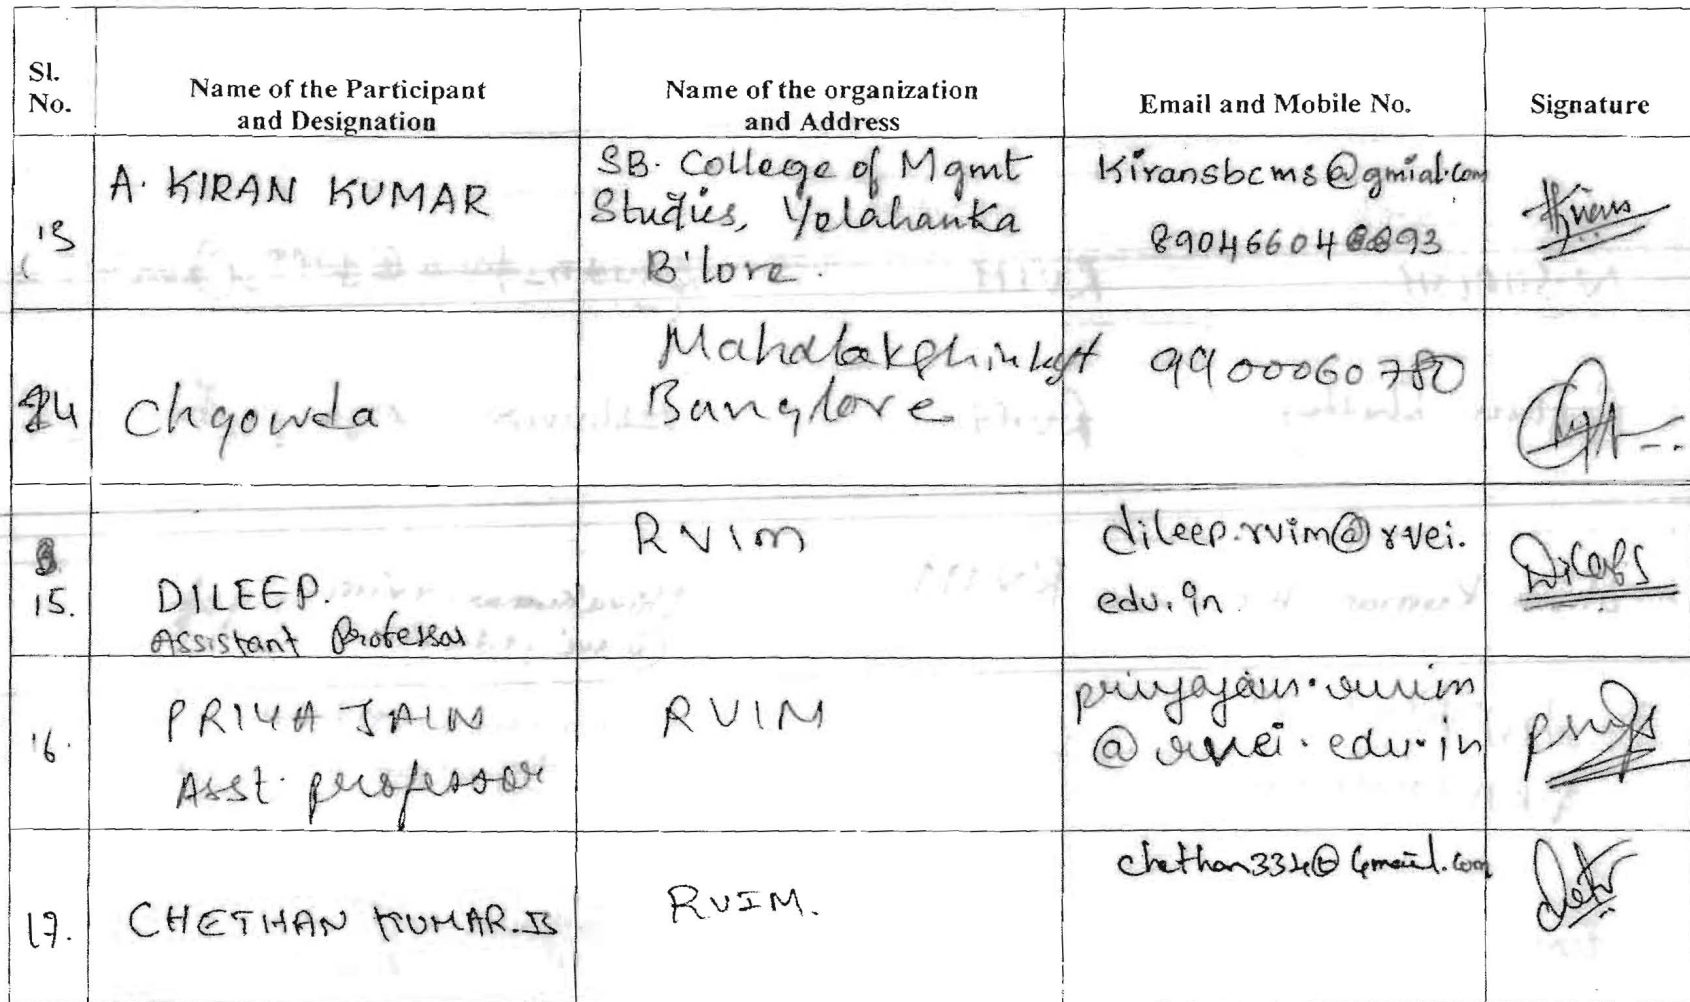 Sl.
No.
Name of the Participant
and Designation
Name of the organization
and Address
Email and Mobile No.
Signature
13
A. KIRAN KUMAR
SB. College of Mgmt
Studies, Yelahanka
B'lore.
Kiransbcms@gmial.com
Kiran
14
Chgowda
Banglore
9900060780
15.
DILEEP.
Assistant Professor
RVIM
dileep.rvim@rvei.
edu.in
Dileep
16.
PRIYA JAIN
Asst. professor
RVIM
priyajain.rvim
@rvei.edu.in
17.
CHETHAN KUMAR.B
RVIM.
chethan334@Gmail.com